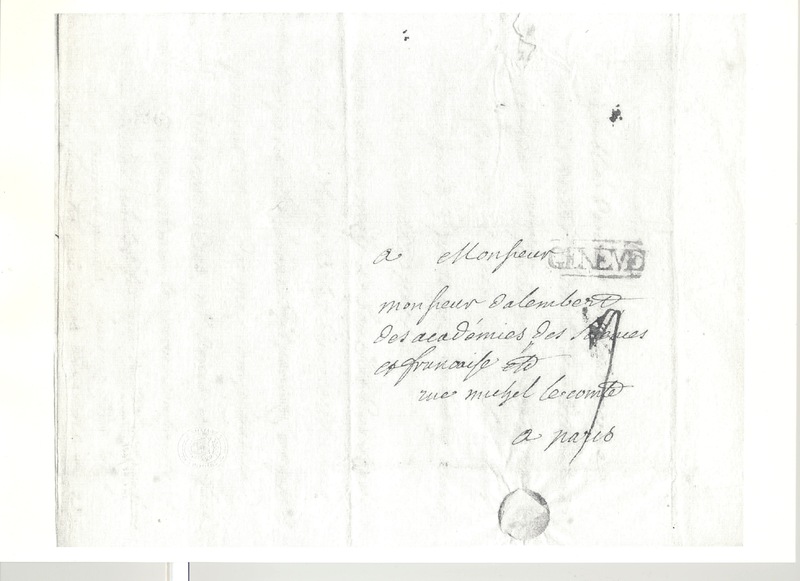 a Monsieur GENEVE
monsieur dalembert
des académies des sciences
et francaise etc
rue michel lecomte
a paris